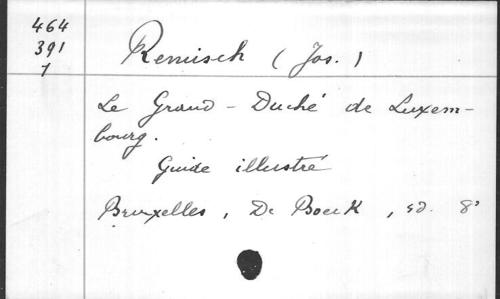 464
391
7
Remisch (Jos.)
Le Grand-Duché de Luxem-
bourg.
Guide illustré
Bruxelles, De Boeck, sd. 8°